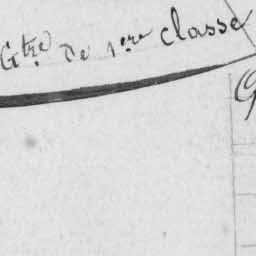 G^tre de 1^ère classe